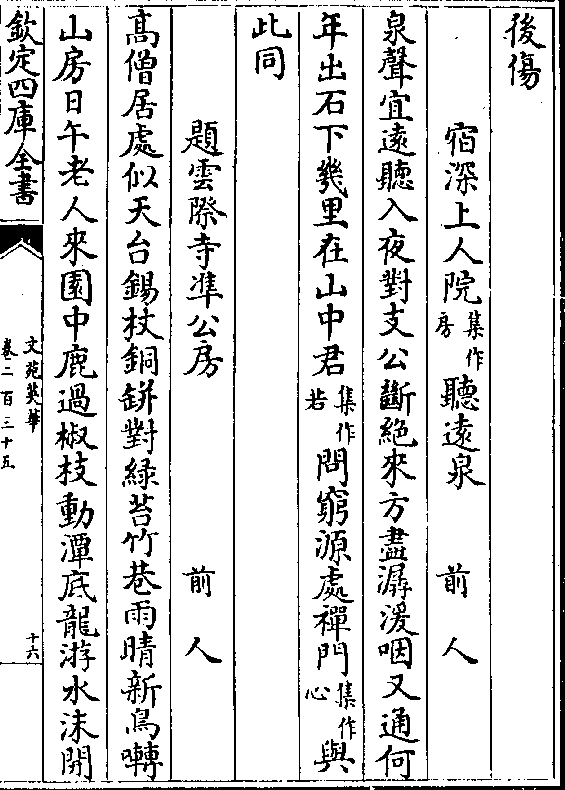 後傷
宿深上人院集作房聽遠泉 前人
泉聲宜遠聽入夜對支公斷絶來方盡潺湲咽又通何
年出石下幾里在山中君集作若問窮源處禪門集作心與
此同
題雲際寺準公房 前人
髙僧居處似天台錫杖銅缾對緑苔竹巷雨晴新鳥囀
山房日午老人來園中鹿過椒枝動潭底龍游水沫開
欽定四庫全書
文苑英華
卷二百三十五
十六